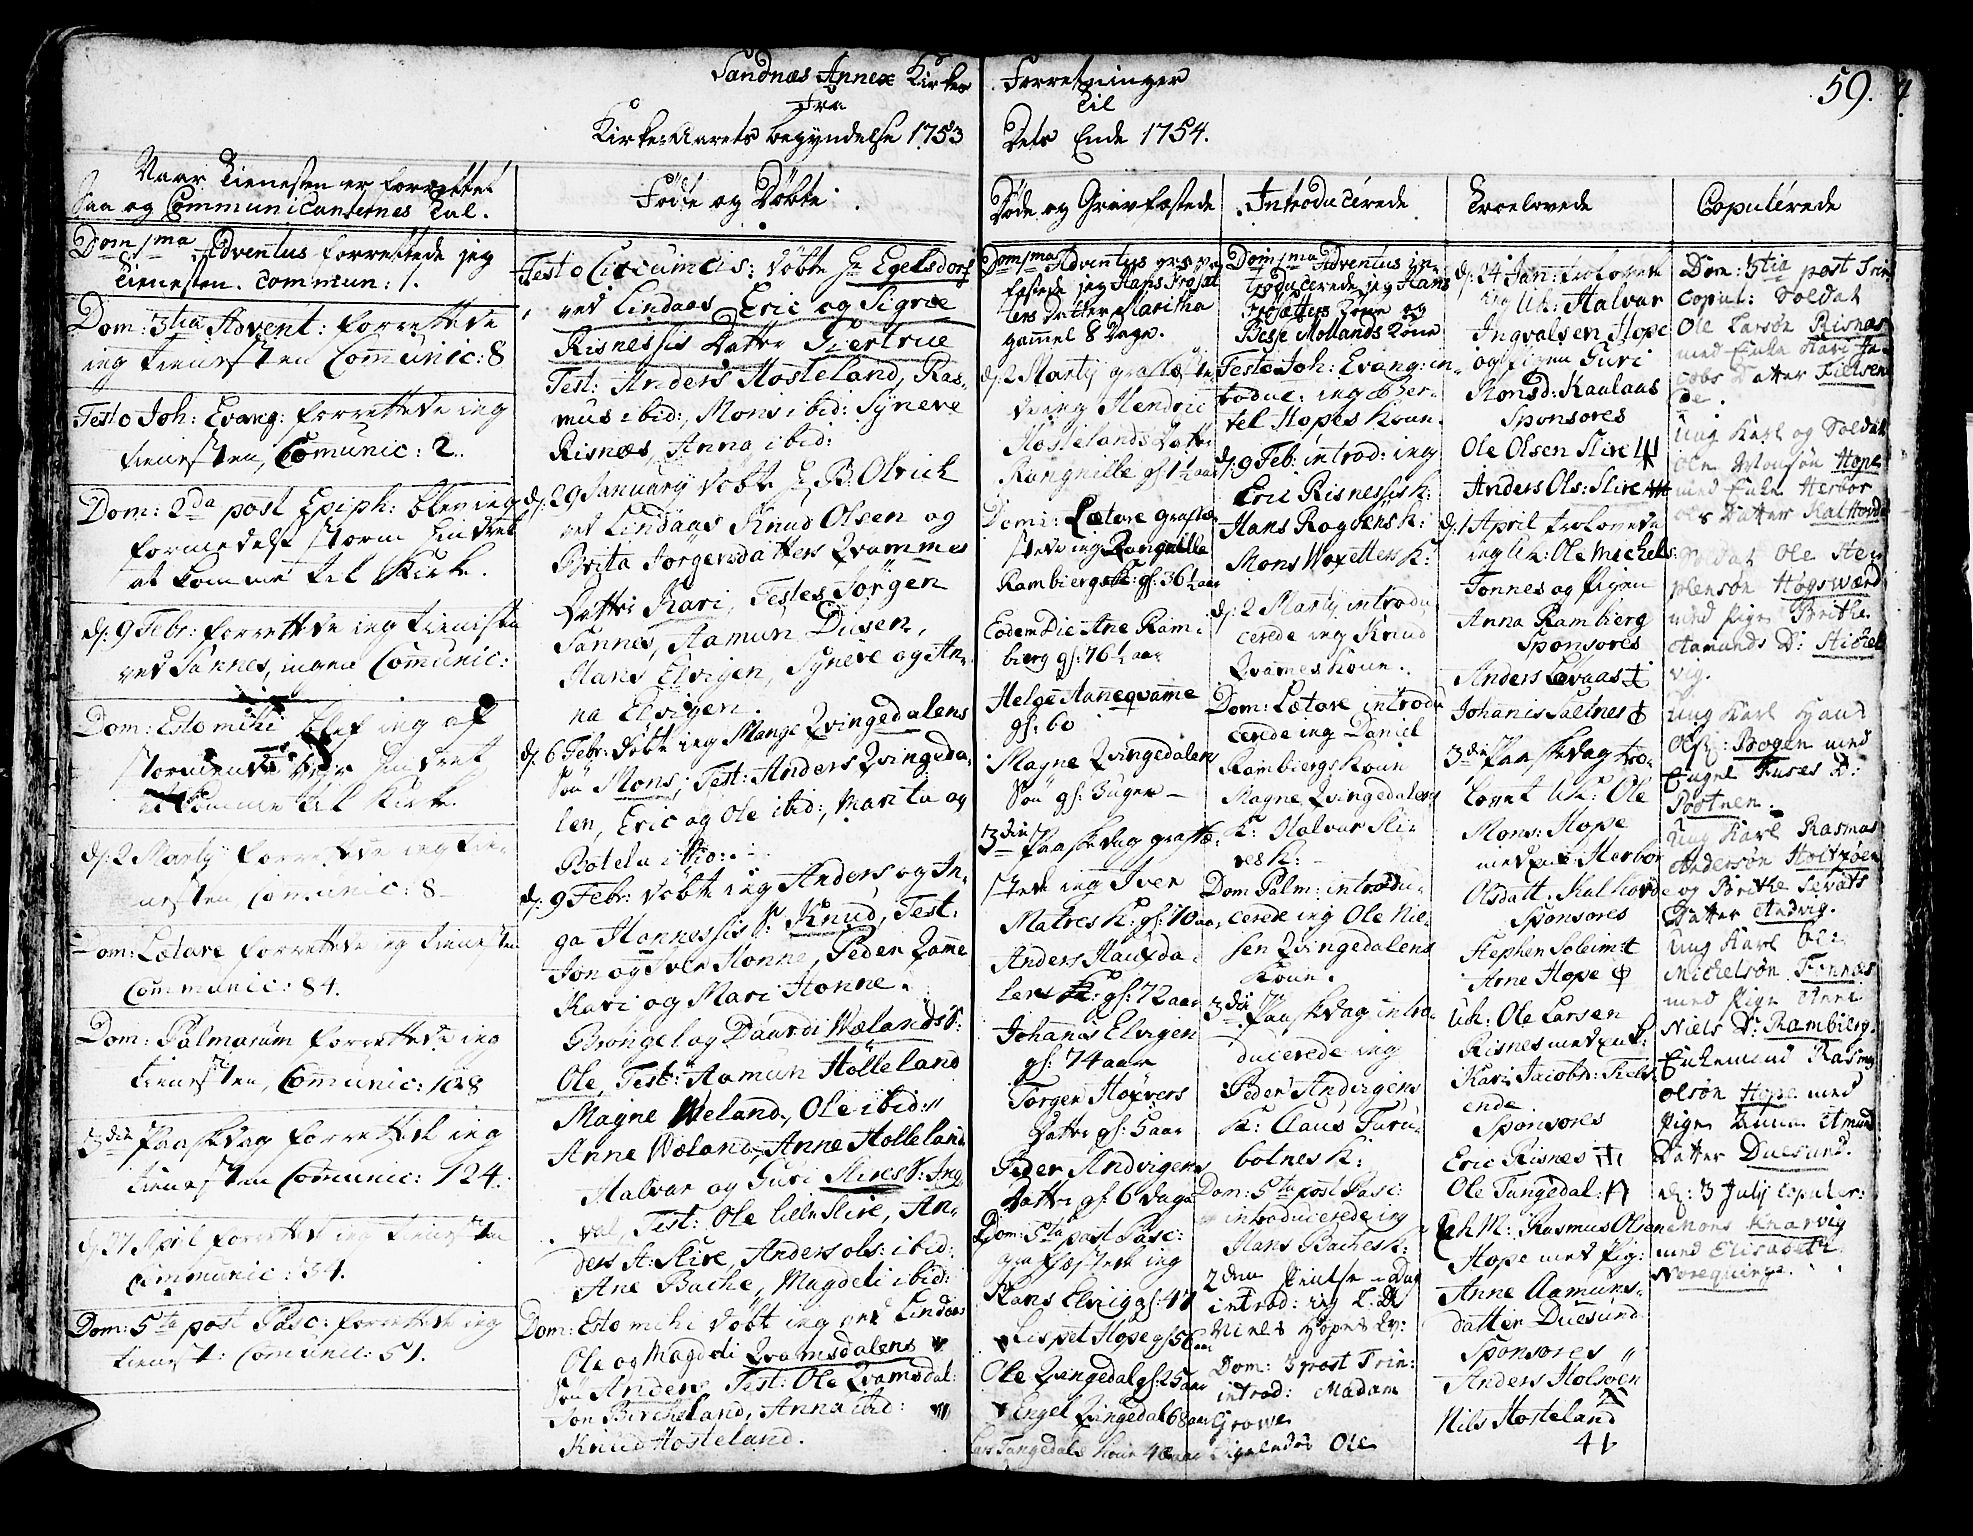 Sandnæs Annex Kirkes Forretninger
59.
Fra
Til
Kirke-Aarets begyndelse 1753
Dets Ende 1754.
Naar Tienesten er forrettet
Saa og Communicanternes Tal.
Dom 1ma Adventus forrettede jeg
Tienesten. Commun: 1.
Dom: 3tia Advent: forrettede
ieg tienesten Communic: 8
Festo Joh: Evang: forrettede ieg
tienesten, Comunic: 2.
Dom: 2da post Epiph: blev ieg
formedelst storm hindret
at komme til Kirke.
d: 9 Febr: forrettede ieg tienisten
ved Sannes, ingen Comunic:
Dom: Esto mihi blef ieg af
stormende veir hindret
at komme til Kirke.
d: 2 Martij forrettede ieg tie-
nesten Comunic: 8
Dom: Lætare forrettede ieg tienesten
Communic: 84.
Dom: Palmarum forrettede ieg
tienesten, Communic: 108
3die Paaskedag forrettede ieg
tienesten Comunic: 124.
d: 27 April forrettede ieg tienesten
Communic: 34.
Dom: 5te post Pasc: forrettede ieg
tienest: Comunic: 51.
Føde og Døbte
Festo Circumcis: døbte Hr Egelsdorf
ved Lindaas Eric og Sigrie
Risnessis Datter Giertrue
Test: Anders Hosteland, Ras-
mus ibid:, Mons ibid: Syneve
Risnæs, Anna ibid:
d: 29 January døbte H. B. Olrich
ved Lindaas Knud Olsen og
Brita Jørgensdatters Qvammes
Datter Kari, Testes Jørgen
Sannes, Aamun Dusen,
Hans Elvigen, Syneve og An-
na Elvigen.
d: 6 Febr: døbte ieg Mange Qvingedalens
Søn Mons, Test: Anders Qvingeda-
len, Eric og Ole ibid:, Marita og
Botela ibid:
d: 9 Febr: døbte ieg Anders og In-
ga Hannessis S: Knud, Test:
Jon og Iver Honne, Peder Qame
Kari og Mari Honne.
Brongel og Daardi Wælands S:
Ole, Test: Aamun Hølleland
Magne Weland, Ole ibid:
Anne Wæland, Anne Holleland
Halvar og Guri Slires S: Ing
val, Test: Ole lille Slire, An-
ders A: Slire, Anders ols: ibid:
Ane Bache, Magdeli ibid:
Dom: Esto mihi døbt ieg ved Lindaas
Ole og Magdeli Qvamsdalens
Søn Anders Test: Ole Qvamsdal:
Jon Bircheland, Anna ibid:
Knud Hosteland.
Døde og Gravfæstede
Dom 1ma Adventus grav-
fæstede jeg Hans Frøsæt
ters Datter Maritha
gammel 8 Dage.
d: 2 Martij grafæste-
de ieg Hendric
Hostelands Datter
Rangnille gl: 1 1/2 aar
Domi: Lætare grafæ-
stede ieg Rangnille
Rambiergs K: gl: 36 1/2 aar
Eodem Die Ane Ram-
bierg gl: 76 1/2 aar
Helge Hanneqvamme
gl: 60
Magne Qvingedalens
Søn gl: 3 uger
3die Paaskedag grafæ-
stede ieg Iver
Matres K: gl: 70 aar
Anders Hauxda-
lens K: gl: 72 aar
Johanas Elvigen
gl: 74 aar
Jørgen Høyvers
Datter gl: 5 aar
Peder Andvigens
Datter gl: 6 Daga
Dom: 5te post Pasc:
grafæstede ieg
Hans Elvig gl: 47
Lispet Hope gl 56 aar
Ole Qvingedal gl: 25 aar
Engel Qvingedal 68 aar
Lars Tangedals Kone 40 aar
Introducerede
Dom 1ma Adventus in-
troducerede jeg Hans
Frøsætters Kone og
Besse Mollands Kone
Festo Joh: Evang: in-
troduc: ieg Ber-
tel Hopes Kone.
d: 9 Feb: introd: ieg
Eric Risnessis K:
Hans Rogbens K:
Mons Woxetters K:
d: 2 Martij introdu
cerede ieg Knud
Qvames Kone.
Dom: Lætare introdu
cerede ieg Daniel
Rambiergs Kone
Magne Qvingedalens
K: Halvar Sli-
res K:
Dom: Palm: introdu-
cerede ieg Ole Nie-
sen Qvingedalens
Kone.
3die Paaskedag intro-
ducerede ieg
Peder Andvigens
K: Claus Furu-
botnes K:
Dom: 5te post Pasc:
introducerede ieg
Hans Baches K:
2den Pintse-Dag
introd: ieg
Niels Hopes
Dom: 3 post Trin:
introd: Madam
Growe
Ole
Troelovede
d: 24 Jan: trolovede
ieg Uk: Halvar
Ingvalsen Hope
og pigen Guri
Monsd: Kaulaas
Sponsores
Ole Olsen Slire
Anders Ols: Slire
d: 1 April trolovede
ieg Uk: Ole Michels:
Fonnes og Pigen
Anna Ramberg
Sponsores
Anders Løvaas
Johanis Saltnes
3die Paaskedag tro-
lovet Uk: Ole
Mons: Hope
med enk: Herbor
Olsdatt. Kalhovde
Sponsores
Stephen Soleim
Arne Hope
Uk: Ole Larsen
Risnes med enk:
Kari Jacobs:
ende
Sponsores
Eric Risnes
Ole Tangedal:
Enk M: Rasmus Olsen
Hope med Pig:
Anne Aamuns-
datter Duesund
Sponsores
Anders Holsøen
Nils Hosteland
Copulerede
Dom: 3tia post Trin:
Copul: Soldat
Ole Larsøn Risnæs
med Enke Kari Ja-
cobs Datter Fieldsen
de.
Ung Karl og Soldat
Ole Monsøn Hope
med Enke Herbor
ols Datter Kalhovde
Soldat Ole Ste-
phensøn Høgsværd
med Pige Brithe
Aamunds D:
vig.
Ung Karl Hans
Ols: Bogen med
Engel Knses D:
Ung Karl Rasmus
Andersøn
og Brithe Sevats
Datter Andvig.
Ung Karl Ole
Michelsøn Fonnæs
med Pige Anne
Niels D: Ramberg.
Enkemand Rasmus
Olsøn Hope med
Pige Anne Amund
Datter Duesund.
d: 3 July Copuler:
Mons Knarvig
med Elisabeth